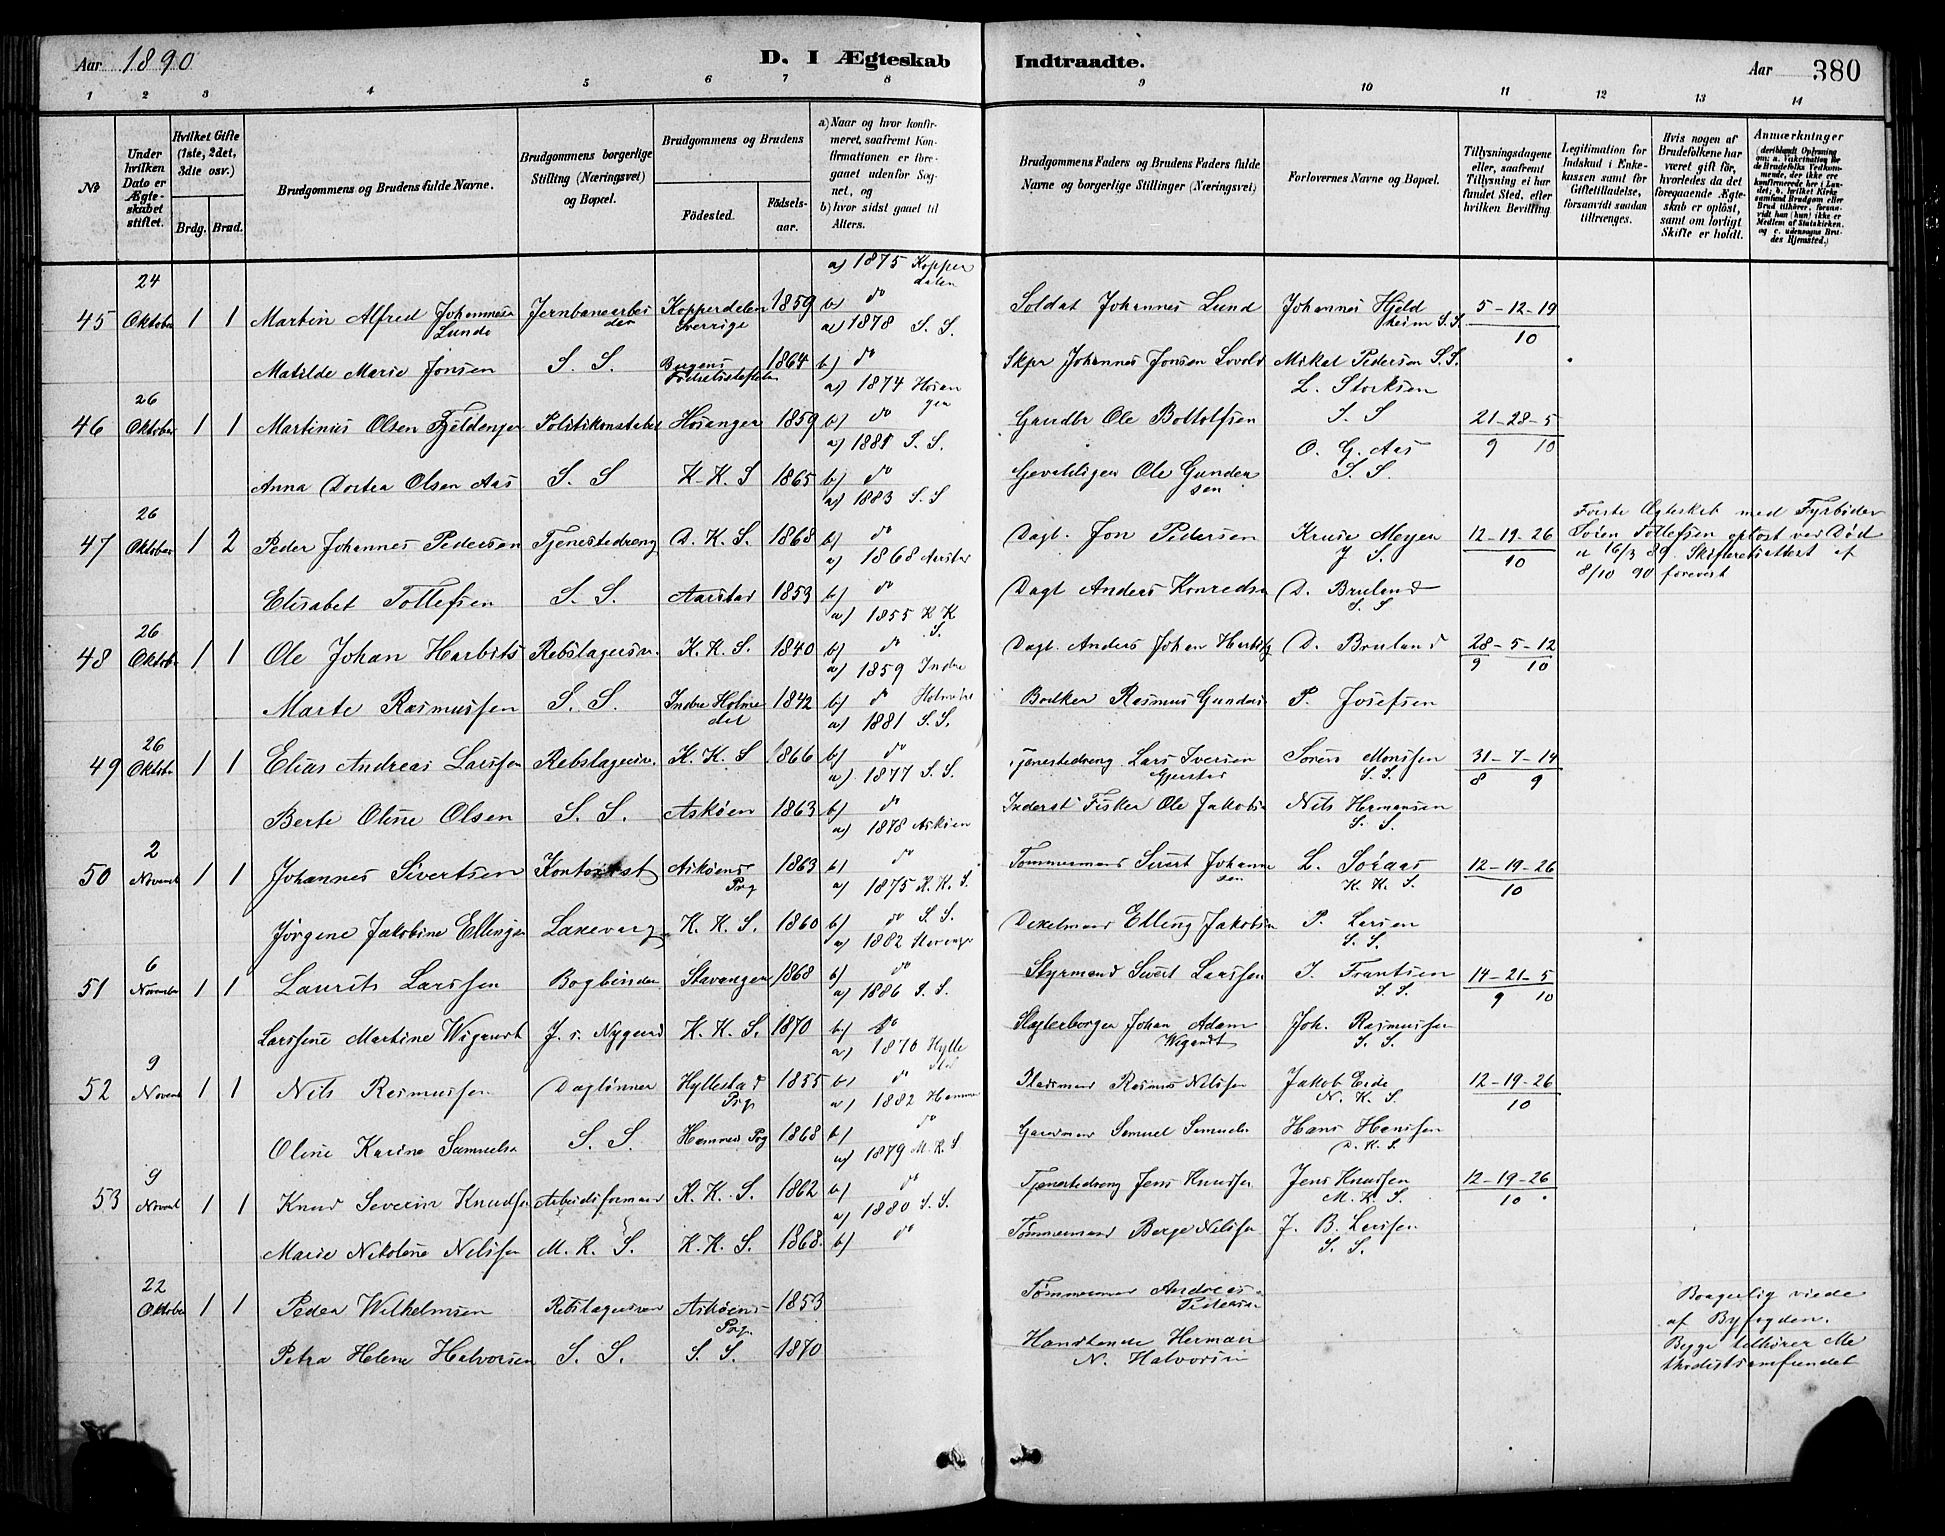 Aar 1890
D. I Ægteskab Indtraadte.
Aar 380
1 2 3 4 5 6 7 8 9 10 11 12 13 14
No
Under hvilken Dato er Ægteskabet stiftet.
Hvilket Gifte (1ste, 2det, 3die osv.)
Brdg. Brud.
Brudgommens og Brudens fulde Navne.
Brudgommens borgerlige Stilling (Næringsvei) og Bopæl.
Brudgommens og Brudens
Fødested.
Fødselsaar.
a) Naar og hvor konfirmeret, saafremt Konfirmationen er foregaaet udenfor Sognet, og
b) hvor sidst gaaet til Alters.
Brudgommens Faders og Brudens Faders fulde Navne og borgerlige Stillinger (Næringsvei)
Forlovernes Navne og Bopæl.
Tillysningsdagene eller, saafremt Tillysning ei har fundet Sted, efter hvilken Bevilling.
Legitimation for Indskud i Enkekassen samt for Giftetilladelse, forsaavidt saadan tiltrænges.
Hvis nogen af Brudefolkene har været gift før, hvorledes da det foregaaende Ægteskab er opløst, samt om lovligt Skifte er holdt.
Anmærkninger
45 24 Oktober 1 1 Martin Alfred Johannesen Lunde Jernbanearbeider Kopperdalen Sverrige 1859 a) 1875 Kopperdalen b) do Soldat Johannes Lund Johannes Hjeldheim S.S. 5-12-19 10
Matilde Marie Jonsen S. S. Bergens Fødselsstiftelse 1864 a) 1878 S. S. b) do Skpr Johannes Jonsen Lovold Mikal Pedersen S.S.
46 26 Oktober 1 1 Martinus Olsen Politikonstabel Hosanger 1859 a) 1874 Hosanger b) do Gaardbr Ole Boltolfsen L. Storksen S. S 21-28-5 9 10
Anna Dortea Olsen Aas S. S K. K. S 1865 a) 1881 S. S. b) do Ole Gundersen O. G. Aas S. S.
47 26 Oktober 1 2 Peder Johannes Pedersen Tjenestedreng D. K. S. 1868 a) 1883 S. S b) do Dagl. Jon Pedersen Kruse Meyer J S. 12-19-26 10 Første Ægteskab med Fyrbøder Søren Tollefsen opløst ved Død 16/3 89. Skifteretsattest af 8/10 90 forevist
Elisabet Tollefsen S. S. Aarstad 1853 a) 1868 Aarstad b) do Dagl Anders Konredsen D. Bruland S. S
48 26 Oktober 1 1 Ole Johan Harbits Rebslagersv. K. K. S. 1840 a) 1855 K K S. b) do Dagl. Anders Johan D. Bruland 28-5-12 9 10
Marte Rasmussen S. S. Indre Holmedal 1842 a) 1859 Indre Holmedal b) do Bødker Rasmus P. Josefsen
49 26 Oktober 1 1 Elias Andreas Larssen Rebslagersv. K. K. S 1866 a) 1881 S. S. b) do Tjenestedreng Lars Iversen Søren Monssen S. S. 31-7-14 8 9
Berte Oline Olsen S. S. Askøen 1863 a) 1877 S. S. b) do Inderst Fisker Ole Jakobsen Nils Hermansen S. S.
50 2 Novemb 1 1 Johannes Sivertsen Kontorist Askøens Prg 1863 a) 1878 Askøen b) do Tømmermand Sivert Johannesen L. Søraas K. K. S. 12-19-26 10
Jørgine Jakobine Ellingsen Laxevaag K. K. S. 1860 a) 1875 K. K. S. b) do S. S. Elling Jakobsen P. Larsen S. S.
51 6 November 1 1 Laurits Larssen Bogbinder Stavanger 1868 a) 1882 Stavanger b) do Styrmand Sivert Larssen J. Frantsen S. S. 14-21-5 9 10
Larssine Martine Wigandt J. s. Nygaard K. K. S. 1870 a) 1886 S. S. b) do Slagterborger Johan Adam Wigandt Joh. Rasmussen S. S.
52 9 Novemb 1 1 Nils Rasmussen Dagløner Hyllestad Prg. 1855 a) 1870 Hyllestad b) do Pladsmand Rasmus Nilssen Jakob Eide N. K. S 12-19-26 10
Oline Karine Samuelsen S. S. Hammer Prg 1868 a) 1882 Hammer b) do Gaardmand Samuel Samuels Hans Hanssen D. K. S.
53 9 Novemb 1 1 Knud Severin Knudsen Arbeidsformand K. K. S. 1862 a) 1879 M. K. S b) do Tjenestedreng Jens Knudsen Jens Knudsen M. K. S. 12-19-26 10
Marie Nikoline Nilssen M. K. S. K. K. S. 1868 a) 1880 S. S. b) do Tømmermand Berge Nilssen J. B. Larssen S. S.
22 Oktober 1 1 Peder Wilhelmsen Rebslagersven Askøens Prg. 1853 Tømmermand Andreas Borgerlig viede af Byfogden. Begge tilhører Methodistsamfundet
Petra Helene Halvorsen S. S. S. S. 1870 Handlende Herman N. Halvorsen